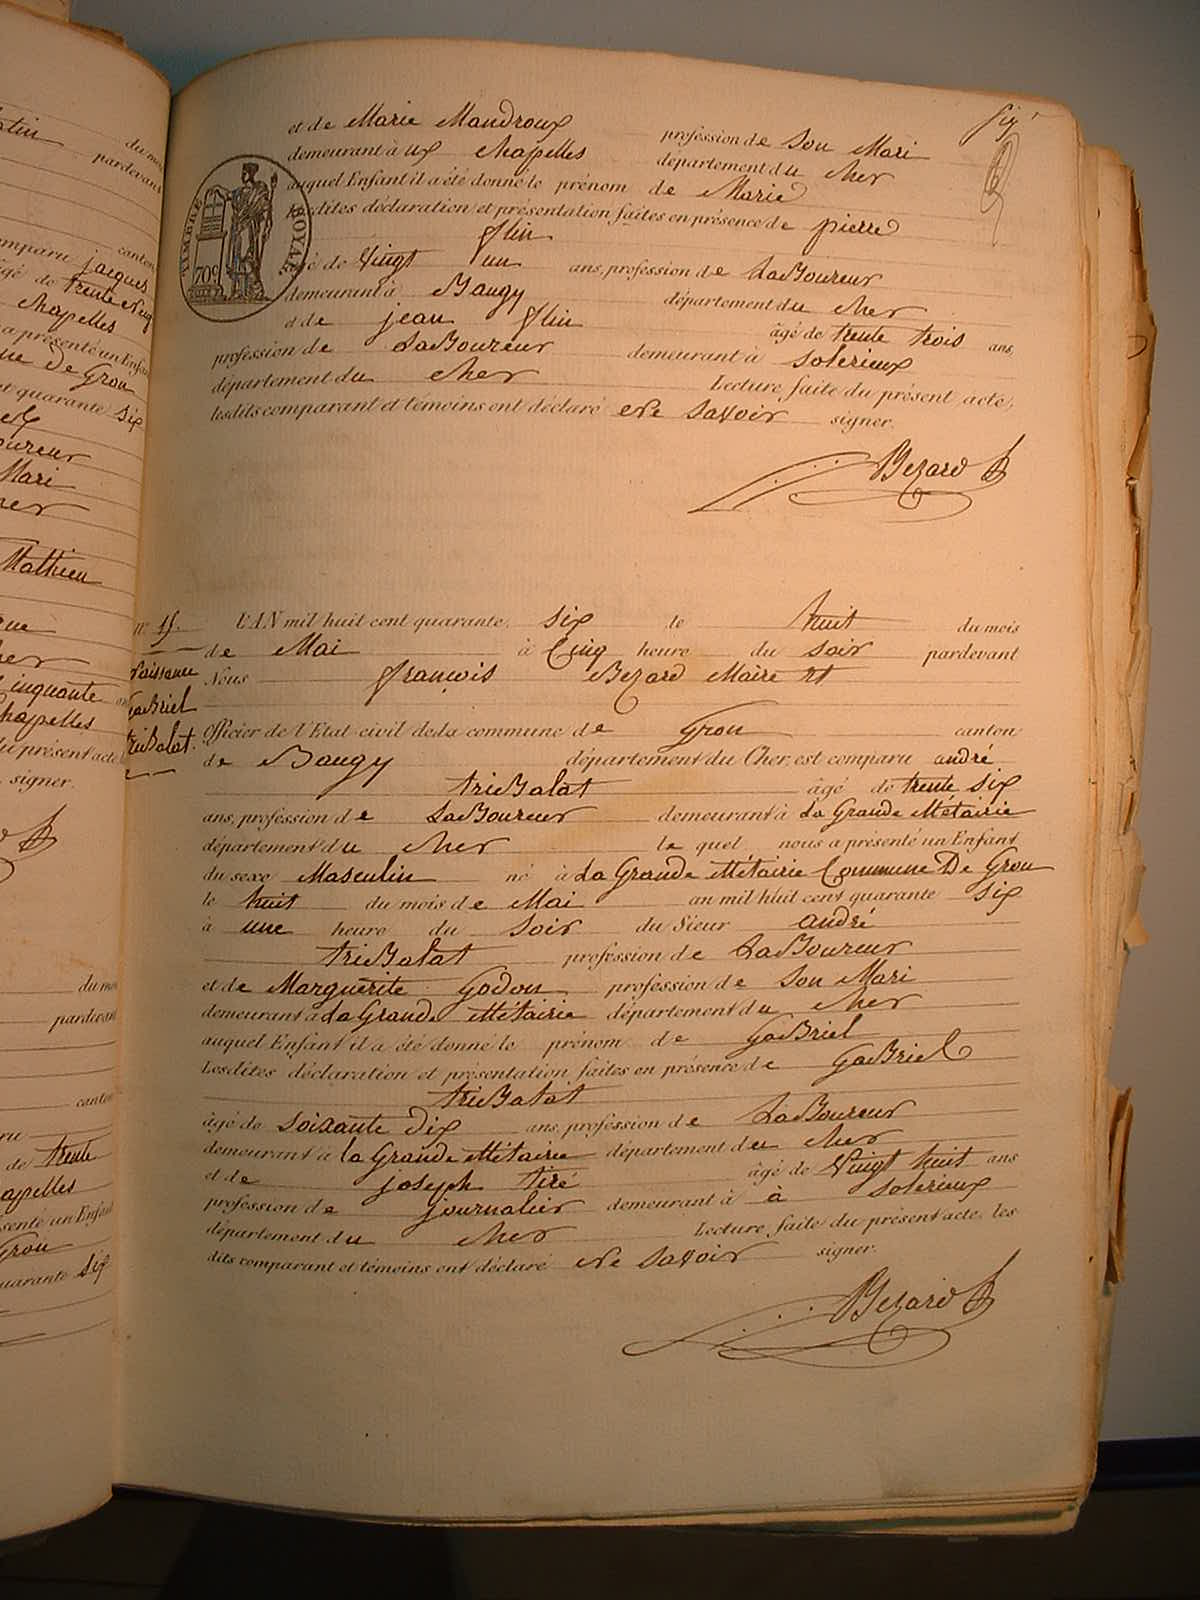 atin du mois
pardevant
canton
omparu jacques
âgé de trente Neuf
Chapelles
a présenté un Enfant
ne De Grou
nt quarante Six
Mari
Mathieu
Cinquante ans
Chapelles
du présent acte
signer.
du mois
pardevant
canton
de trente
apelles
senté un Enfant
Grou
quarante Six
Six
et de Marie Mandroux profession de Son Mari
demeurant à ux Chapelles département du Cher
auquel Enfant il a été donné le prénom de Marie
Lesdites déclaration et présentation faites en présence de pierre
flin
âgé de Vingt un ans, profession de LaBoureur
demeurant à Baugy département du Cher
et de jean flin âgé de trente trois ans,
profession de LaBoureur demeurant à Solerieux
département du Cher Lecture faite du présent acte,
lesdits comparant et témoins ont déclaré Ne Savoir signer.
TIMBRE ROYAL
70c
Bezard
N° 15.
Naissance
GaBriel
triBalat.
L'AN mil huit cent quarante Six le huit du mois
de Mai à Cinq heure du Soir pardevant
Nous françois Bezard Maire et
Officier de l'Etat civil de la commune de Grou canton
de Baugy département du Cher, est comparu andré
triBalat âgé de trente Six
ans, profession de LaBoureur demeurant à La Grande Métairie
département du Cher le quel nous a présenté un Enfant
du sexe Masculin né à La Grande Métairie Commune De Grou
le huit du mois de Mai an mil huit cent quarante Six
à une heure du Soir du Sieur andré
triBalat profession de LaBoureur
et de Marguérite Godou profession de Son Mari
demeurant à la Grande Métairie département du Cher
auquel Enfant il a été donné le prénom de GaBriel
Lesdites déclaration et présentation faites en présence de GaBriel
triBalat
âgé de Soixante Dix ans, profession de LaBoureur
demeurant à la Grande Métairie département du Cher
et de joseph tiré âgé de Vingt huit ans
profession de journalier demeurant à à Solerieux
département du Cher Lecture faite du présent acte, les
dits comparant et témoins ont déclaré Ne Savoir signer.
Bezard